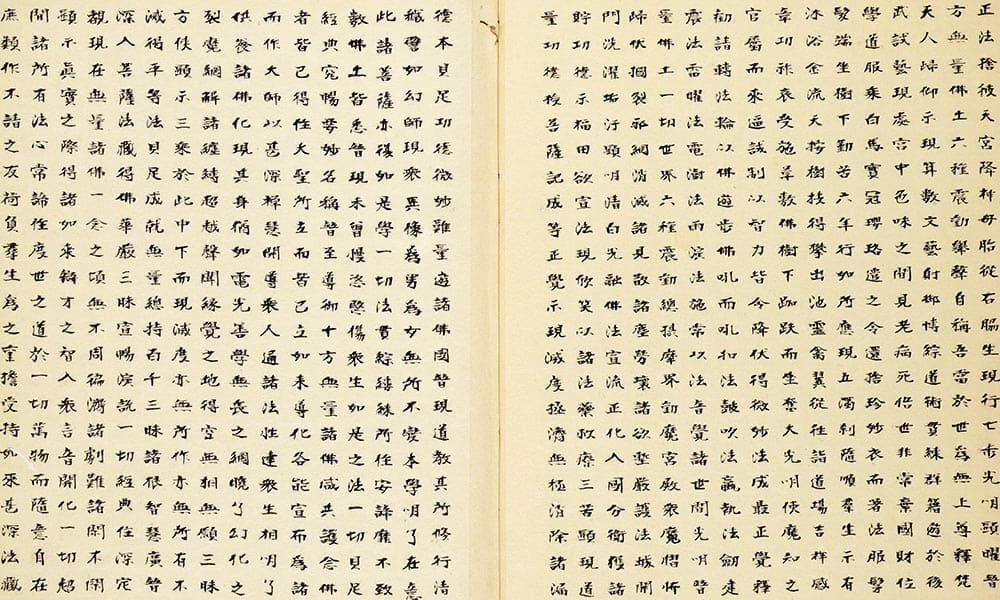 正法捨彼天宮降神母胎從右脇生現行七步光明顯曜普
方無量佛土六種震動舉聲自稱吾當於世為無上尊釋梵
天人歸仰示現算數文藝射御博綜道術貫練群籍遊於後
武試藝現處宮中色味之間見老病死悟世非常棄國財位
學道服乘白馬寶冠瓔珞遣之令還捨珍妙衣而著法服剃
髮端坐樹下勤苦六年行如所應現五濁剎隨順羣生示有
沐浴金流天按樹枝得攀出池靈禽翼從往詣道場吉祥感
章功祚哀受施草敷佛樹下跏趺而坐奮大光明使魔知之
官屬而來逼試制以智力皆令降伏得微妙法成最正覺釋
勸請轉法輪以佛遊步佛吼而吼扣法鼓吹法螺執法劍建
震法雷曜法電澍法雨演法施常以法音覺諸世間光明普
量佛土一切世界六種震動總攝魔界動魔宮殿眾魔慴怖
歸伏摑裂邪網消滅諸見散諸塵勞壞諸欲塹嚴護法城開
門洗濯垢污顯明清白光融佛法宣流正化入國分衛獲諸
貯功德示福田欲宣法現欣笑以諸法藥救療三苦顯現道
量功德授菩薩記成等正覺示現滅度拯濟無極消除諸漏
德本具足功德微妙難量遊諸佛國普現道教其所修行清
穢譬如幻師現眾異像為男為女無所不變本學明了在意
此諸菩薩亦復如是學一切法貫綜縷練所住安諦靡不致
數佛土皆悉普現未曾慢恣愍傷眾生如是之法一切具足
經典究暢要妙名稱普至導御十方無量諸佛咸共護念佛
者皆已得住大聖所立而皆已立如來導化各能宣布為諸
而作大師以甚深禪慧開導眾人通諸法性達眾生相明了
供養諸佛化現其身猶如電光善學無畏之網曉了幻化之
裂魔網解諸纏縛超越聲聞緣覺之地得空無相無願三昧
方便顯示三乘於此中下而現滅度亦無所作亦無所有不
滅得平等法具足成就無量總持百千三昧諸根智慧廣普
深入菩薩法藏得佛華嚴三昧宣暢演說一切經典住深定
覩現在無量諸佛一念之頃無不周徧濟諸劇難諸閑不閑
顯示真實之際得諸如來辯才之智入眾言音開化一切超
間諸所有法心常諦住度世之道於一切萬物而隨意自在
庶類作不請之友荷負羣生為之重擔受持如來甚深法藏